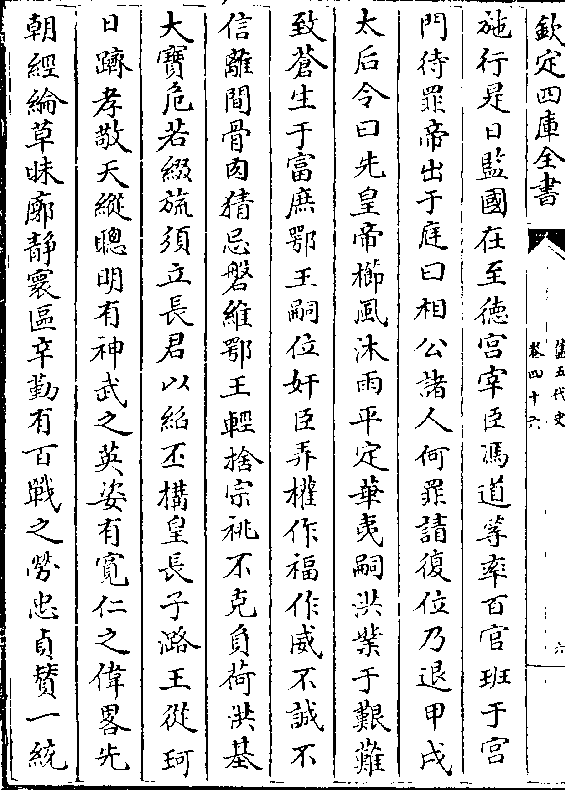 欽定四庫全書
舊五代史
卷四十六
六
施行是日監國在至德宮宰臣馮道等率百官班于宮
門待罪帝出于庭曰相公諸人何罪請復位乃退甲戌
太后令曰先皇帝櫛風沐雨平定華夷嗣洪業于艱難
致蒼生于富庶鄂王嗣位奸臣弄權作福作威不誠不
信離間骨肉猜忌磐維鄂王輕捨宗祧不克負荷洪基
大寶危若綴旒須立長君以紹丕構皇長子潞王從珂
日躋孝敬天縱聰明有神武之英姿有寛仁之偉畧先
朝經綸草昧廓静寰區辛勤有百戰之勞忠貞贊一統